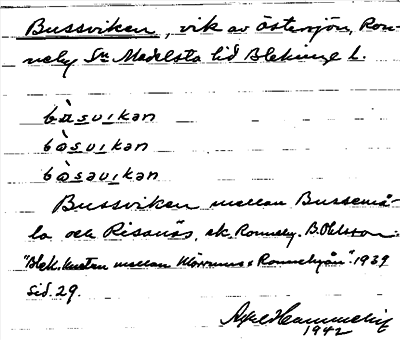 Bussviken, vik av Östersjön, Ron-
neby Sn Medelsta hd Blekinge L.
bὰsvıkan
bὰsvıkan
bὰsavıkan
Bussviken mellan Bussemå-
la och Risanäs, sk. Ronneby. B. Ohlsson:
"Blek. kusten mellan Mörrums o Ronnebyån". 1939
sid. 29.
Axel Hammelin
1942